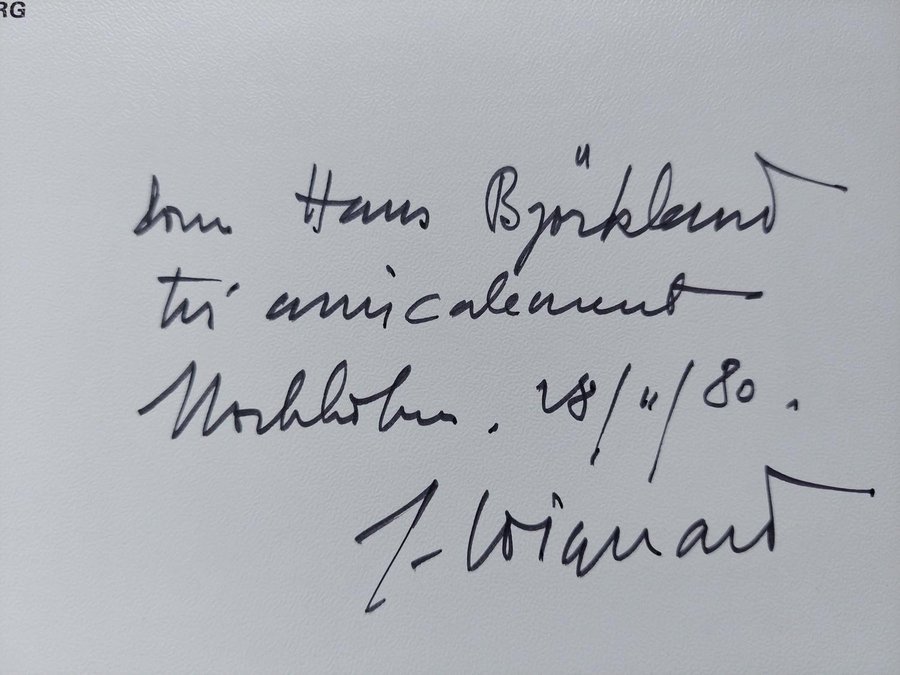 RG
pour Hans Björklund
très amicalement
Stockholm. 28/11/80.
J- Coignard